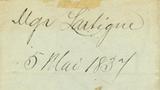 Mgr Lartigue
5 Mai 1837